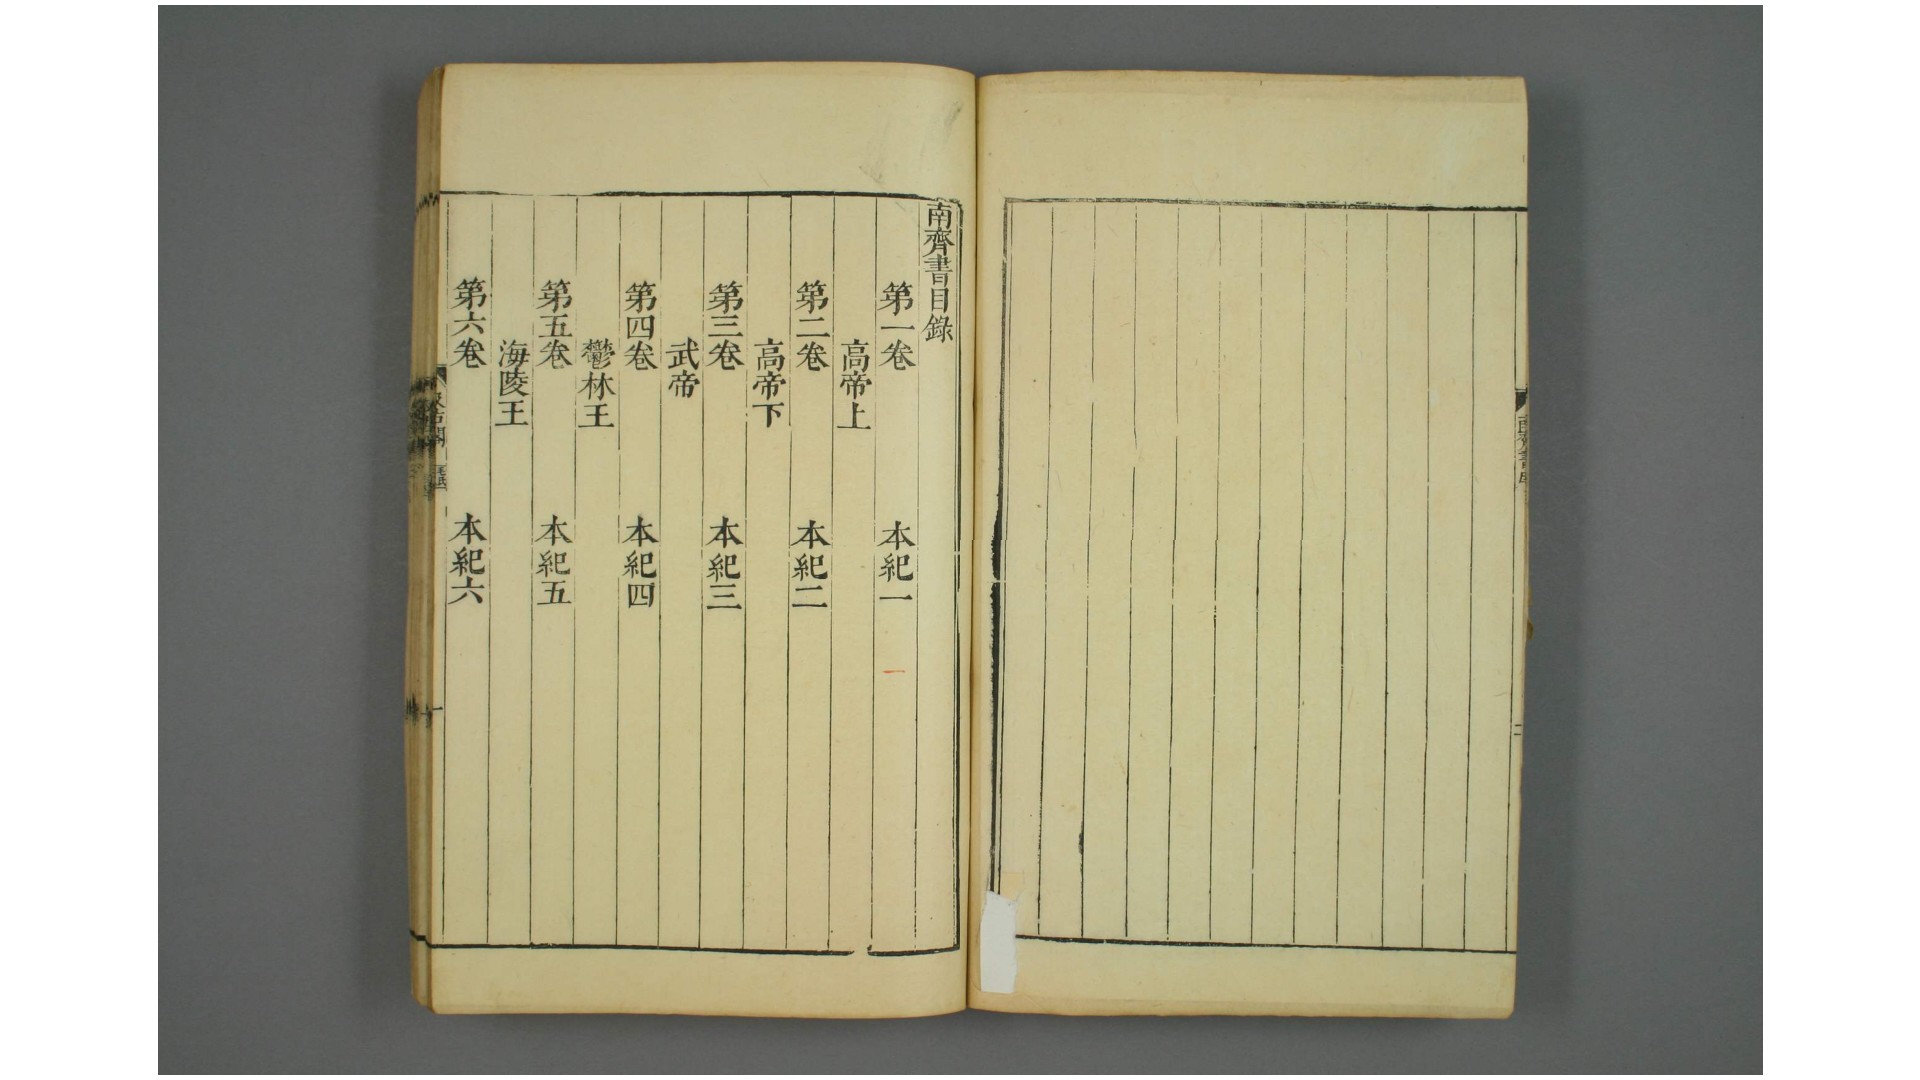 南齊書目錄
第一卷 本紀一
高帝上
第二卷 本紀二
高帝下
第三卷 本紀三
武帝
第四卷 本紀四
鬱林王
第五卷 本紀五
海陵王
第六卷 本紀六